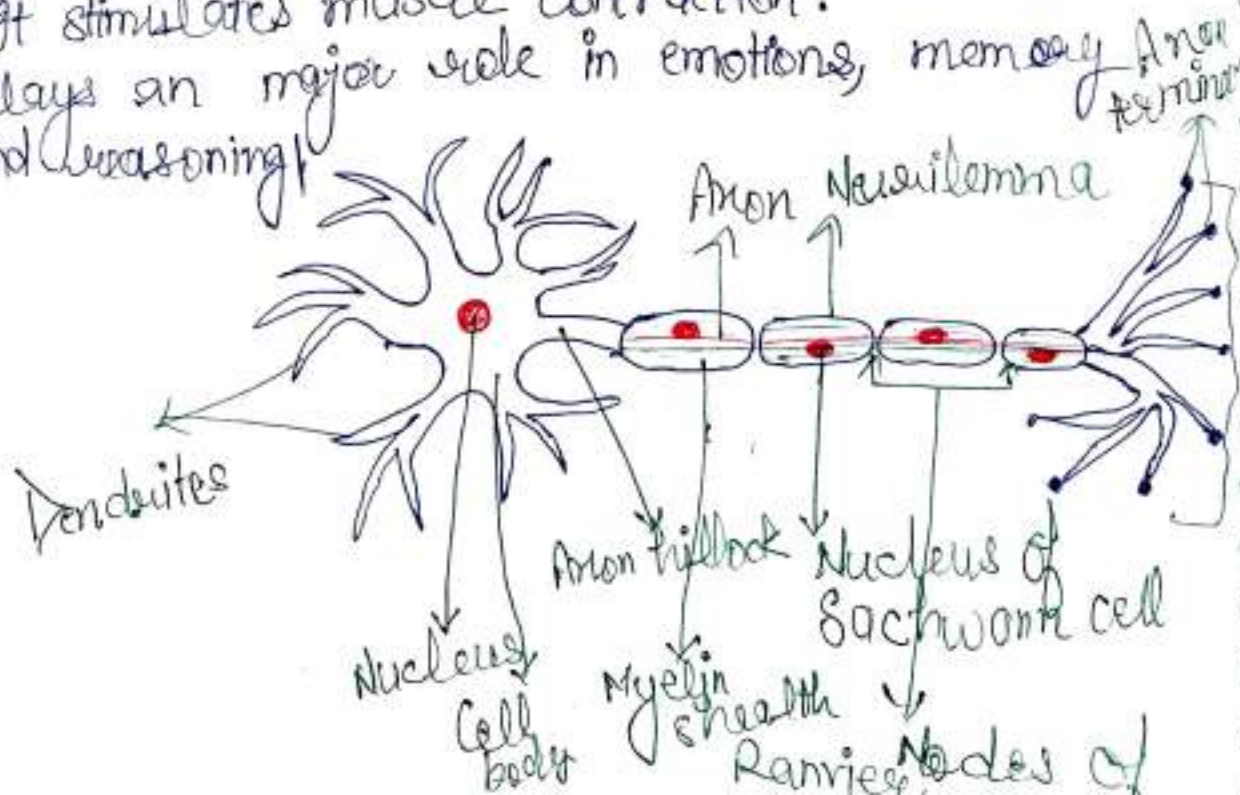 It stimulates muscle contraction.
lays an major role in emotions, memory
nd reasoning
Axon
termina
Axon Neurilemma
Dendrites
Axon hillock
Nucleus of
Sachwann cell
Nucleus
Cell
body
Myelin
shealth
Nodes of
Ranvier